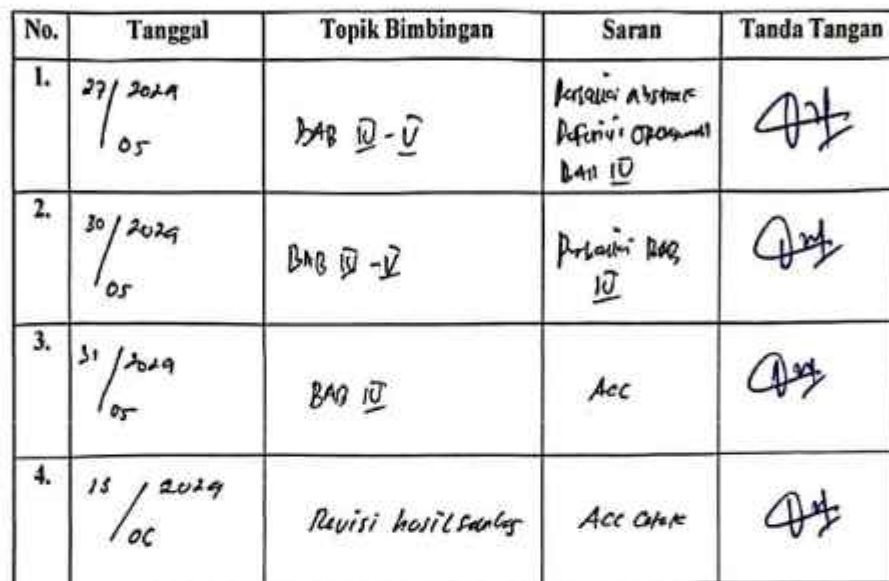 No. Tanggal Topik Bimbingan Saran Tanda Tangan
1. 27/2024
05
BAB IV - V
Perbaiki Abstrak
Definisi Operasional
BAB IV
2. 30/2024
05
BAB IV - V
Perbaiki BAB
IV
3. 31/2024
05
BAB IV
Acc
4. 13/2024
06
Revisi hasil
Acc Cetak